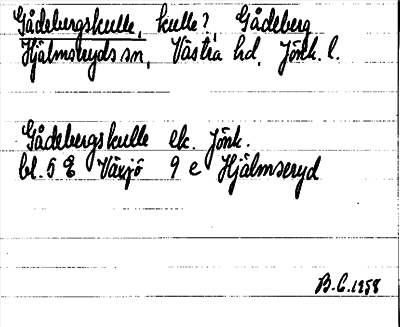 Gådebergskulle, kulle?, Gådeberg
Hjälmseryds sn, Västra hd, Jönk. l.
Gådebergskulle ek. Jönk.
bl. 5 E Växjö 9 e Hjälmseryd
B.C. 1958